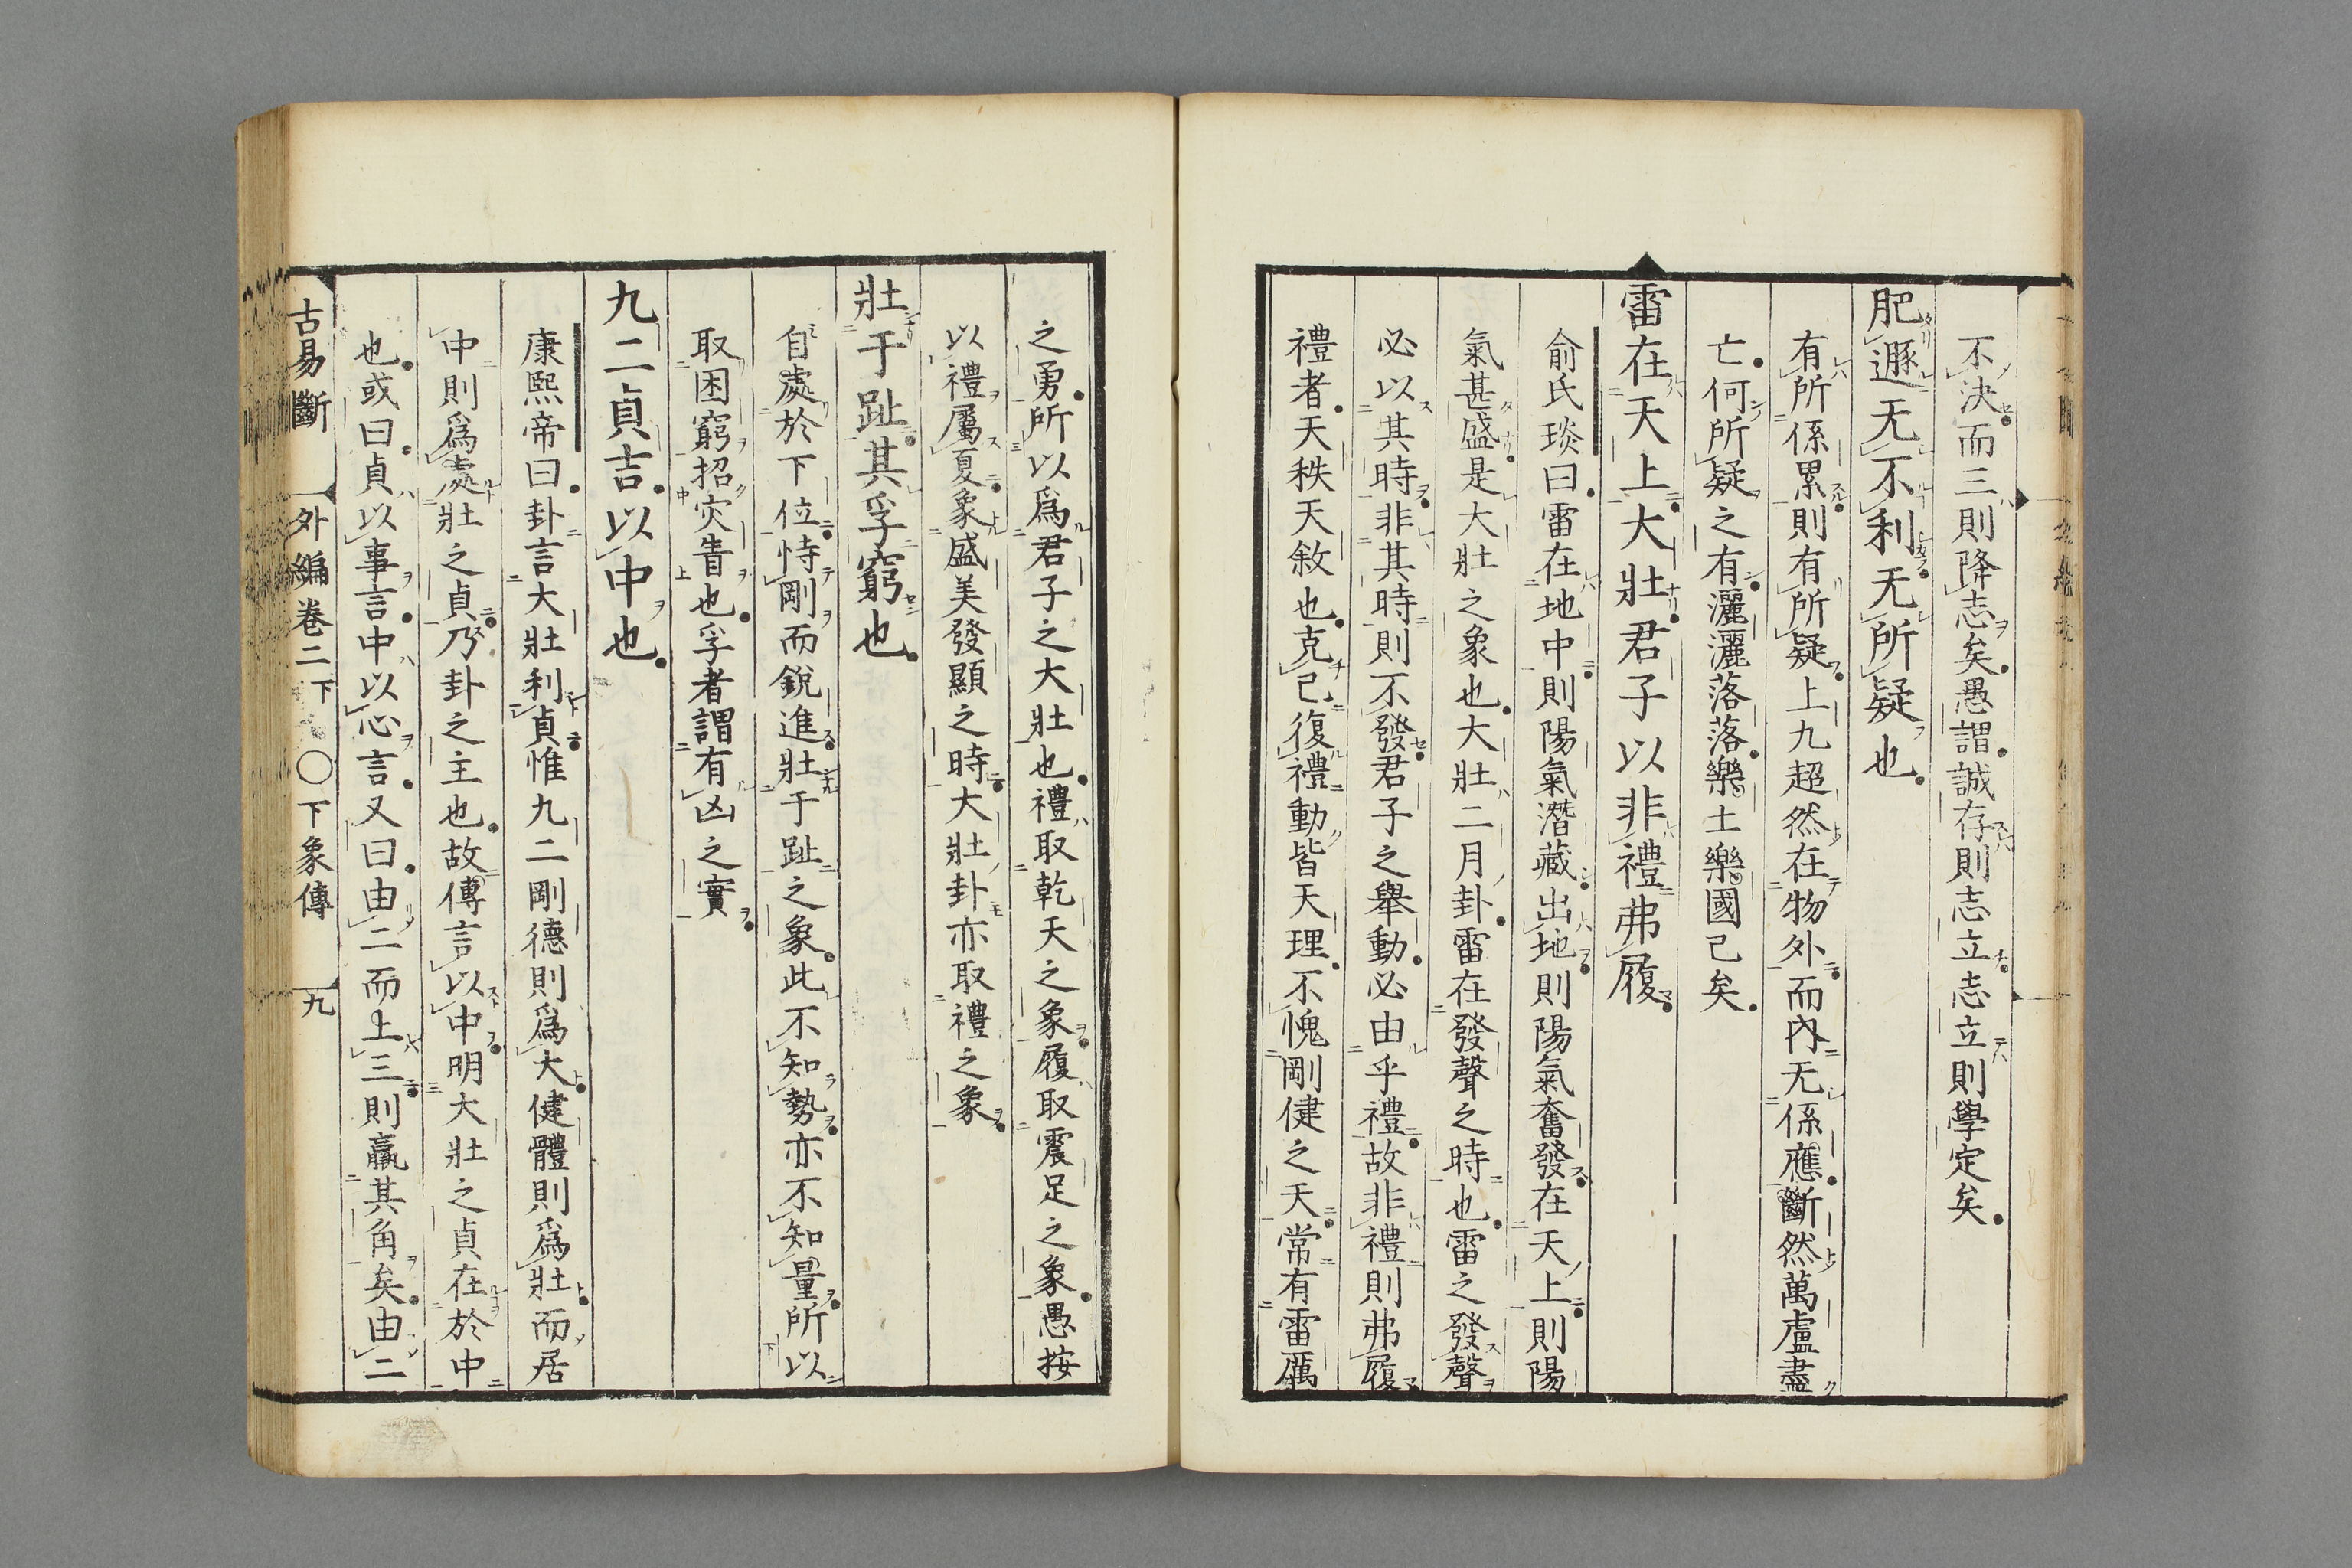 不決而三則降志矣愚謂誠存則志立志立則學定矣
肥遯无不利无所疑也
有所係累則有所疑上九超然在物外而內无係應斷然萬慮盡
亡何所疑之有灑灑落落樂土樂國已矣
雷在天上大壯君子以非禮弗履
俞氏琰曰雷在地中則陽氣潛藏出地則陽氣奮發在天上則陽
氣甚盛是大壯之象也大壯二月卦雷在發聲之時也雷之發聲
必以其時非其時則不發君子之舉動必由乎禮故非禮則弗履
禮者天秩天敘也克己復禮動皆天理不愧剛健之天常有雷厲
之勇所以爲君子之大壯也禮取乾天之象履取震足之象愚按
以禮屬夏象盛美發顯之時大壯卦亦取禮之象
壯于趾其孚窮也
自處於下位恃剛而銳進壯于趾之象此不知勢亦不知量所以
取困窮招灾眚也孚者謂有凶之實
九二貞吉以中也
康熙帝曰卦言大壯利貞惟九二剛德則爲大健體則爲壯而居
中則爲處壯之貞乃卦之主也故傳言以中明大壯之貞在於中
也或曰貞以事言中以心言又曰由二而上三則羸其角矣由二
古易斷 外編卷二下 ○下象傳 九